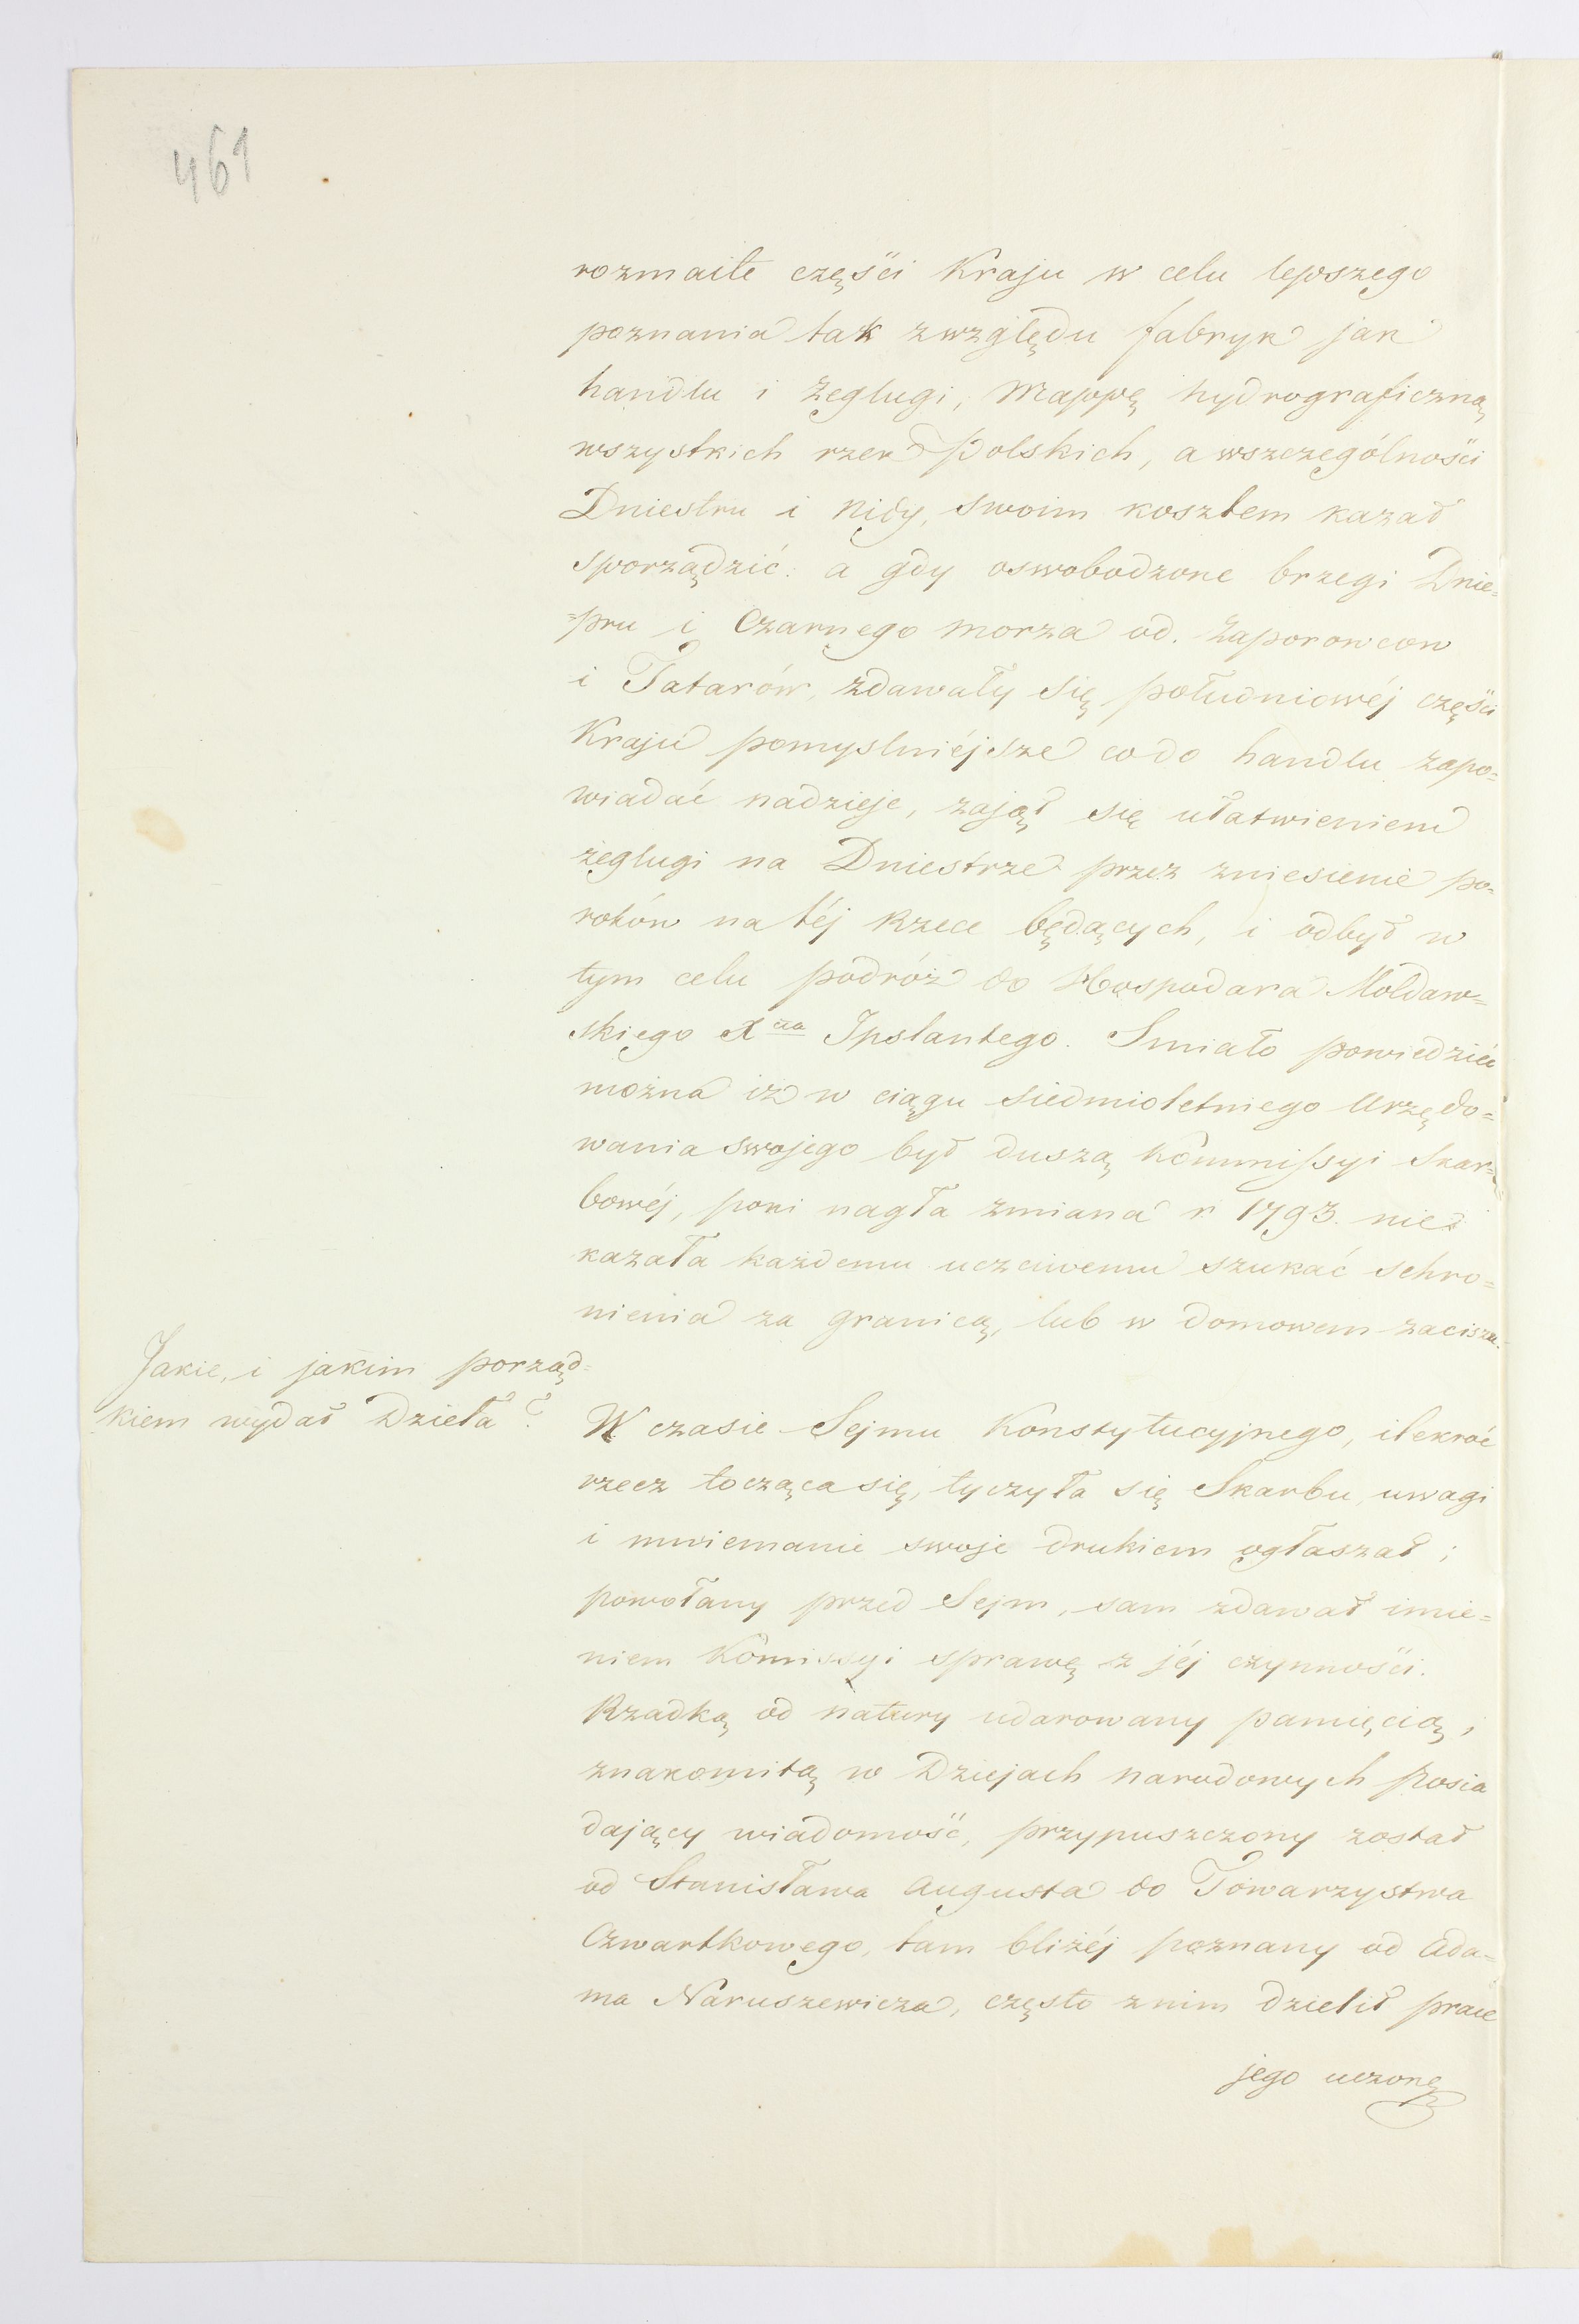 461
rozmaite częs̈ci Kraju w celu lepszego
poznania tak zwzględu fabryk jak
handlu i żeglugi, Mappę hydrograficzną
wszystkich rzek Polskich, a wszczególnos̈ci
Dniestru i Nidy, swoim kosztem kazał
sporządzić: a gdy oswobodzone brzegi Dnie=
=pru i Czarnego morza od. Zaporowcow
i Tatarów, zdawały się południowéj częs̈ci
Kraju pomyslniéjsze codo handlu zapo=
wiadać nadzieje, zajął się ułatwieniem
żeglugi na Dniestrze przez zniesienie po=
rohów na téj Rzece będących, i odbył w
tym celu podróż do Hospodara Mołdaw=
skiego Xcia Ipslantego. Smiało powiedzieć
można iż w ciągu siedmioletniego Urzędo=
wania swojego był duszą Kommissyi Skar=
bowéj, poki nagła zmiana r. 1793. nie
kazała każdemu uczciwemu szukać schro=
nienia za granicą, lub w domowem zaciszu.
Jakie, i jakim porząd=
kiem wydał Dzieła?
W czasie Sejmu Konstytucyjnego, ilekroć
rzecz tocząca się, tyczyła się Skarbu, uwagi
i mniemanie swoje drukiem ogłaszał;
powołany przed Sejm, sam zdawał imie=
niem Komissyi sprawę z jéj czynnos̈ci.
Rzadką od natury udarowany pamięcią,
znakomitą w Dziejach narodowych posia
dający wiadomos̈ć, przypuszczony został
od Stanisława Augusta do Towarzystwa
Czwartkowego, tam bliżéj poznany od Ada=
ma Naruszewicza, często znim dzielił prace
jego uczone